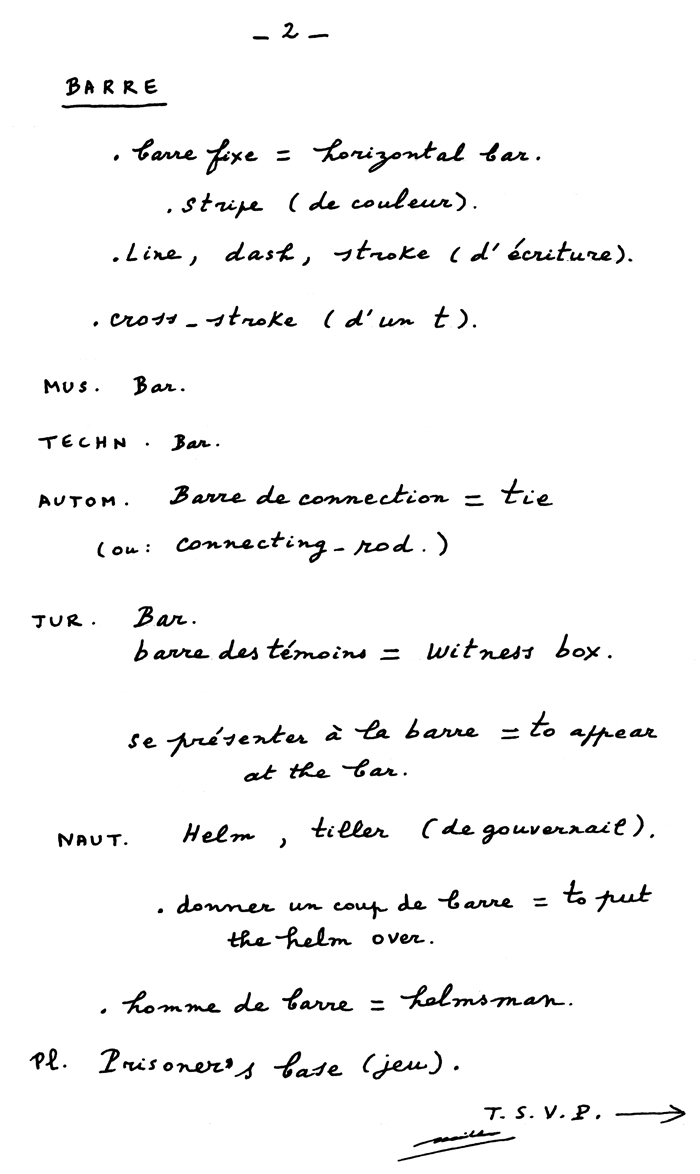 – 2 –
BARRE
. barre fixe = horizontal bar.
. stripe (de couleur).
. Line, dash, stroke (d'écriture).
. cross-stroke (d'un t).
MUS. Bar.
TECHN. Bar.
AUTOM. Barre de connection = tie
(ou: connecting-rod.)
JUR. Bar.
barre des témoins = witness box.
se présenter à la barre = to appear
at the bar.
NAUT. Helm, tiller (de gouvernail).
. donner un coup de barre = to put
the helm over.
. homme de barre = helmsman.
Pl. Prisoner's base (jeu).
T.S.V.P. →